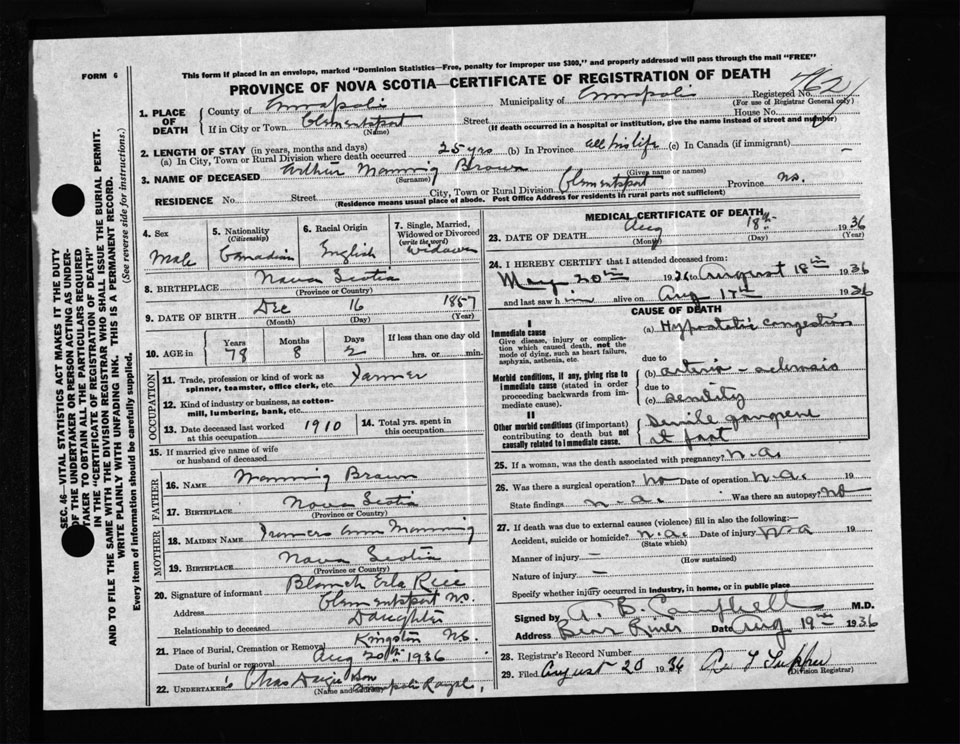 FORM 6
This form if placed in an envelope, marked "Dominion Statistics—Free, penalty for improper use $300," and properly addressed will pass through the mail "FREE"
PROVINCE OF NOVA SCOTIA—CERTIFICATE OF REGISTRATION OF DEATH
Registered No.
(For use of Registrar General only)
1. PLACE OF DEATH
County of Annapolis Municipality of Annapolis
If in City or Town Clementsport Street House No.
(Name) (If death occurred in a hospital or institution, give the name instead of street and number)
2. LENGTH OF STAY (in years, months and days)
(a) In City, Town or Rural Division where death occurred 25 yrs (b) In Province all his life (c) In Canada (if immigrant) —
3. NAME OF DECEASED Arthur Manning Brown
(Surname) (Given name or names)
RESIDENCE No. Street City, Town or Rural Division Clementsport Province N.S.
(Residence means usual place of abode. Post Office Address for residents in rural parts not sufficient)
4. Sex Male
5. Nationality (Citizenship) Canadian
6. Racial Origin English
7. Single, Married, Widowed or Divorced (write the word) Widower
8. BIRTHPLACE Nova Scotia
(Province or Country)
9. DATE OF BIRTH Dec 16 1857
(Month) (Day) (Year)
10. AGE in Years 78 Months 8 Days 2 If less than one day old hrs. or min.
OCCUPATION
11. Trade, profession or kind of work as spinner, teamster, office clerk, etc. Farmer
12. Kind of industry or business, as cotton-mill, lumbering, bank, etc.
13. Date deceased last worked at this occupation 1910
14. Total yrs. spent in this occupation
15. If married give name of wife or husband of deceased
FATHER
16. NAME Manning Brown
17. BIRTHPLACE Nova Scotia
(Province or Country)
MOTHER
18. MAIDEN NAME Ann Manning
19. BIRTHPLACE Nova Scotia
(Province or Country)
20. Signature of informant Blanch Erla Rice
Address Clementsport N.S.
Relationship to deceased Daughter
21. Place of Burial, Cremation or Removal Kingston N.S.
Date of burial or removal Aug 20th 1936
22. UNDERTAKER'S Chas Son
(Name and Address) Annapolis Royal,
MEDICAL CERTIFICATE OF DEATH
23. DATE OF DEATH Aug 18th 1936
(Month) (Day) (Year)
24. I HEREBY CERTIFY that I attended deceased from:
May 20th 1936 to August 18th 1936
and last saw him alive on Aug 17th 1936
CAUSE OF DEATH
I
Immediate cause
Give disease, injury or complication which caused death, not the mode of dying, such as heart failure, asphyxia, asthenia, etc.
(a) Hypostatic congestion
due to
Morbid conditions, if any, giving rise to immediate cause (stated in order proceeding backwards from immediate cause).
(b) arterio-sclerosis
due to
(c) senility
II
Other morbid conditions (if important) contributing to death but not causally related to immediate cause.
Senile gangrene
at foot
25. If a woman, was the death associated with pregnancy? n.a.
26. Was there a surgical operation? no Date of operation n.a. 19
State findings n.a. Was there an autopsy? no
27. If death was due to external causes (violence) fill in also the following:—
Accident, suicide or homicide? n.a. Date of injury n.a 19
(State which)
Manner of injury — (How sustained)
Nature of injury —
Specify whether injury occurred in Industry, in home, or in public place
Signed by A. B. Campbell M.D.
Address Bear River Date Aug 19th 1936
28. Registrar's Record Number
29. Filed August 20 1936
(Division Registrar)
SEC. 46—VITAL STATISTICS ACT MAKES IT THE DUTY
OF THE UNDERTAKER OR PERSON ACTING AS UNDER-
TAKER TO OBTAIN ALL THE PARTICULARS REQUIRED
IN THE "CERTIFICATE OF REGISTRATION OF DEATH"
AND TO FILE THE SAME WITH THE DIVISION REGISTRAR WHO SHALL ISSUE THE BURIAL PERMIT.
WRITE PLAINLY WITH UNFADING INK. THIS IS A PERMANENT RECORD.
Every item of information should be carefully supplied. (See reverse side for instructions.)